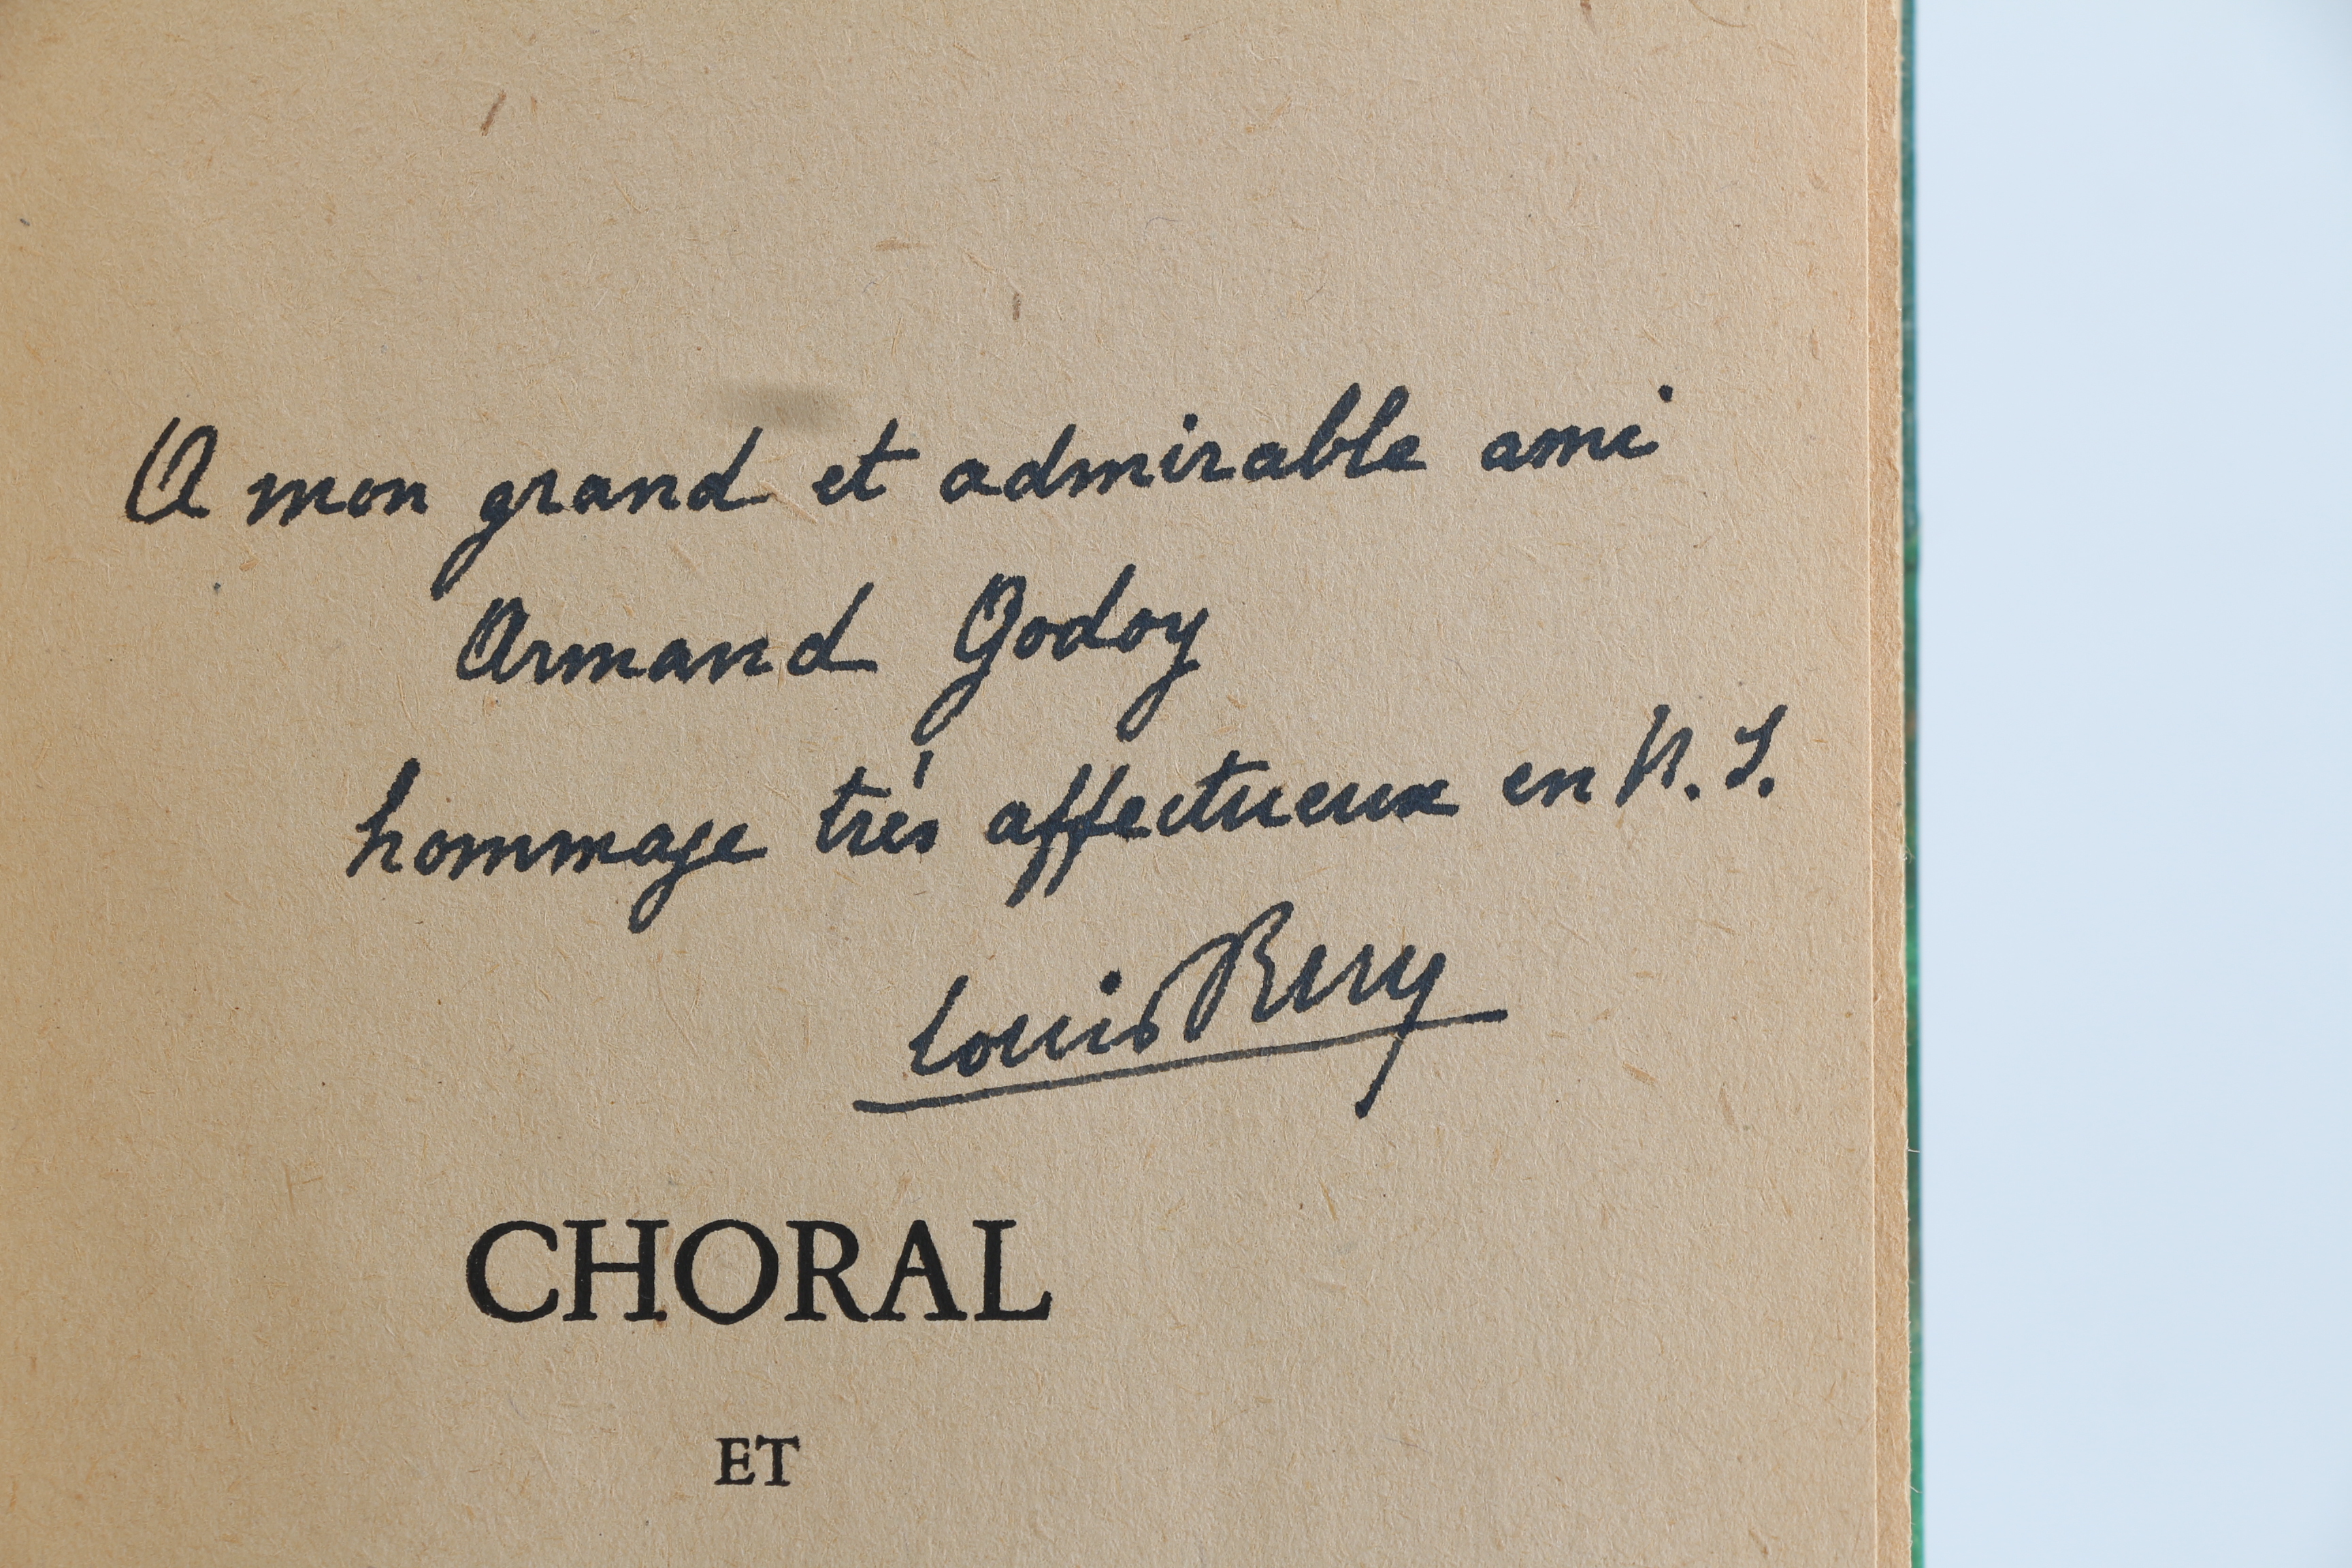 A mon grand et admirable ami
Armand Godoy
hommage très affectueux en N. S.
Louis
CHORAL
ET